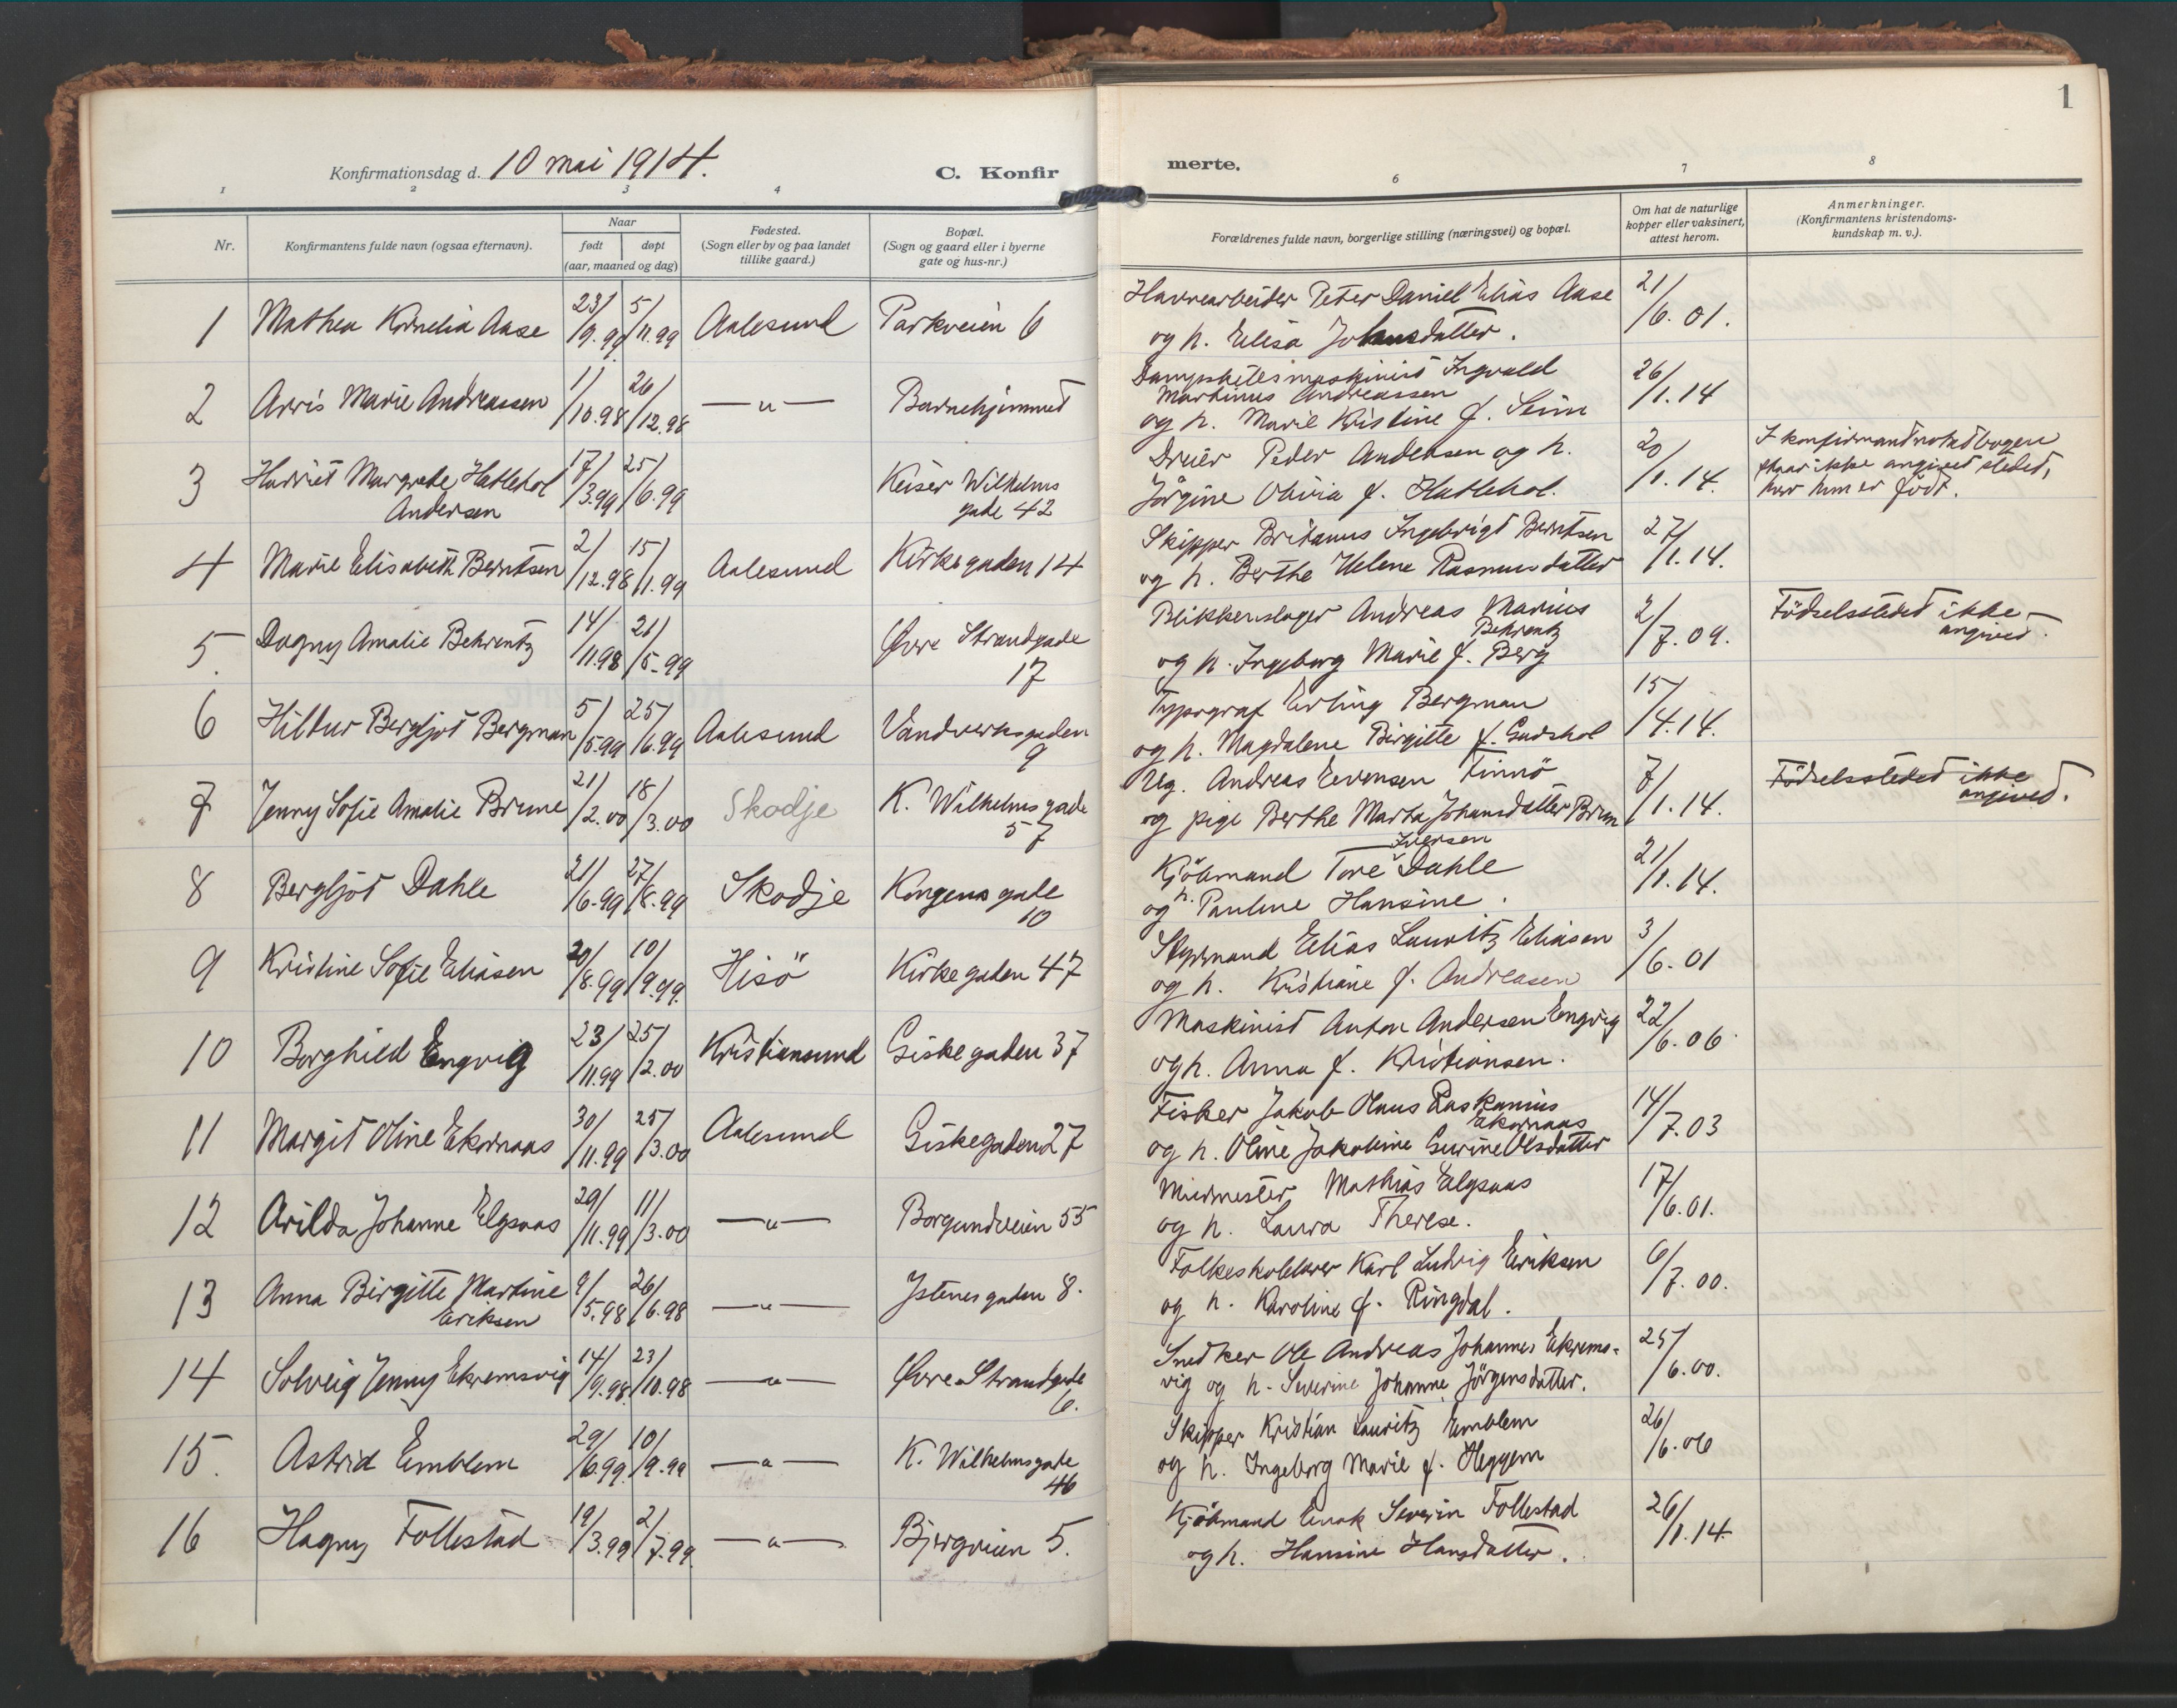 1
Konfirmationsdag d. 10 mai 1914.
C. Konfir
merte.
1 2 3 4
6 7 8
Nr.
Konfirmantens fulde navn (ogsaa efternavn).
Naar
født døpt
(aar, maaned og dag)
Fødested.
(Sogn eller by og paa landet
tillike gaard.)
Bopæl.
(Sogn og gaard eller i byerne
gate og hus-nr.)
Forældrenes fulde navn, borgerlige stilling (næringsvei) og bopæl.
Om hat de naturlige
kopper eller vaksinert,
attest herom.
Anmerkninger.
(Konfirmantens kristendoms-
kundskap m. v.).
1 Mathea Kornelia Aase 23/9.99 5/11.99 Aalesund Parkveien 6
Havnearbeider Peter Daniel Elias Aase 21/6.01.
og h. Elisa Johansdatter.
2 Arvis Marie Andreassen 1/10.98 26/12.98 —"— Barnehjemmet
Dampskibsmaskinist Ingvald
Martinus Andreassen 26/1.14
og h. Marie Kristine f. Seim
3 Harriet Margrete Hatlehol
Andersen 17/3.99 25/6.99 Keiser Wilhelms
gade 42
Dreier Peder Andersen og h. 20/1.14.
Jörgine Olivia f. Hatlehol.
I konfirmandnotatbogen
staar ikke angivet stedet,
hvor hun er födt.
4 Marie Elisabeth Berntsen 2/12.98 15/1.99 Aalesund Kirkegaden 14
Skipper Britanus Ingebrigt Berntsen 27/1.14.
og h. Berthe Helene Rasmusdatter
5. Dagny Amalie Behrentz 14/11.98 21/5.99 Øvre Strandgade
17
Blikkenslager Andreas Marius
Behrentz 2/7.09.
og h. Ingeborg Marie f. Berg
Födselsstedet ikke
angivet.
6 Hildur Bergljot Bergman 5/5.99 25/6.99 Aalesund Vandverksgaden
9
Typograf Erling Bergman 15/4.14.
og h. Magdalene Birgitte f. Gudshol
7 Jenny Sofie Amalie Brune 21/2.00 18/3.00 Skodje K. Wilhelmsgade
57
Ug. Andreas Evensen Finnö 7/1.14.
og pige Berthe Marta Johansdatter Brun
Födselsstedet ikke
angived.
8 Bergljot Dahle 21/6.99 27/8.99 Skodje Kongensgade
10
Iversen
Kjöbmand Tore Dahle 21/1.14.
og h. Pauline Hansine.
9 Kristine Sofie Eliasen 20/8.99 10/9.99. Hisö Kirkegaden 47
Styrmand Elias Lauritz Eliasen 3/6.01
og h. Kristiane f. Andreasen
10 Borghild Engvig 23/11.99 25/2.00 Kristiansund Giskegaden 37
Maskinist Anton Andersen Engvig 22/6.06.
og h. Anna f. Kristiansen.
11 Margit Oline Ekornaas 30/11.99 25/3.00 Aalesund Giskegaden 27
Fisker Jakob Olaus Laskanius
Ekornaas 14/7.03
og h. Oline Jakobine Gurine Olsdatter
12 Arilda Johanne Elgsaas 29/11.99 11/3.00 —"— Borgundveien 55
Murmester Mathias Elgsaas 17/6.01.
og h. Laura Therese.
13 Anna Birgitte Martine
Eriksen 9/5.98 26/6.98 —"— Jstenesgaden 8.
Folkeskolelærer Karl Ludvig Eriksen 6/7.00.
og h. Karoline f. Ringdal.
14 Solveig Jenny Ekremsvig 14/9.98. 23/10.98 —"— Øvre Strandgade
6.
Snedker Ole Andreas Johannes Ekrems-
vig og h. Severine Johanne Jörgensdatter. 25/6.00.
15. Astrid Emblem 29/6.99. 10/9.99 —"— K. Wilhelmsgade
46
Skipper Kristian Lauritz Emblem 26/6.06
og h. Ingeborg Marie f. Heggem
16 Hagny Follestad 19/3.99 2/7.99. —"— Bjergveien 5.
Kjöbmand Enok Severin Follestad 26/1.14
og h. Hansine Hansdatter.